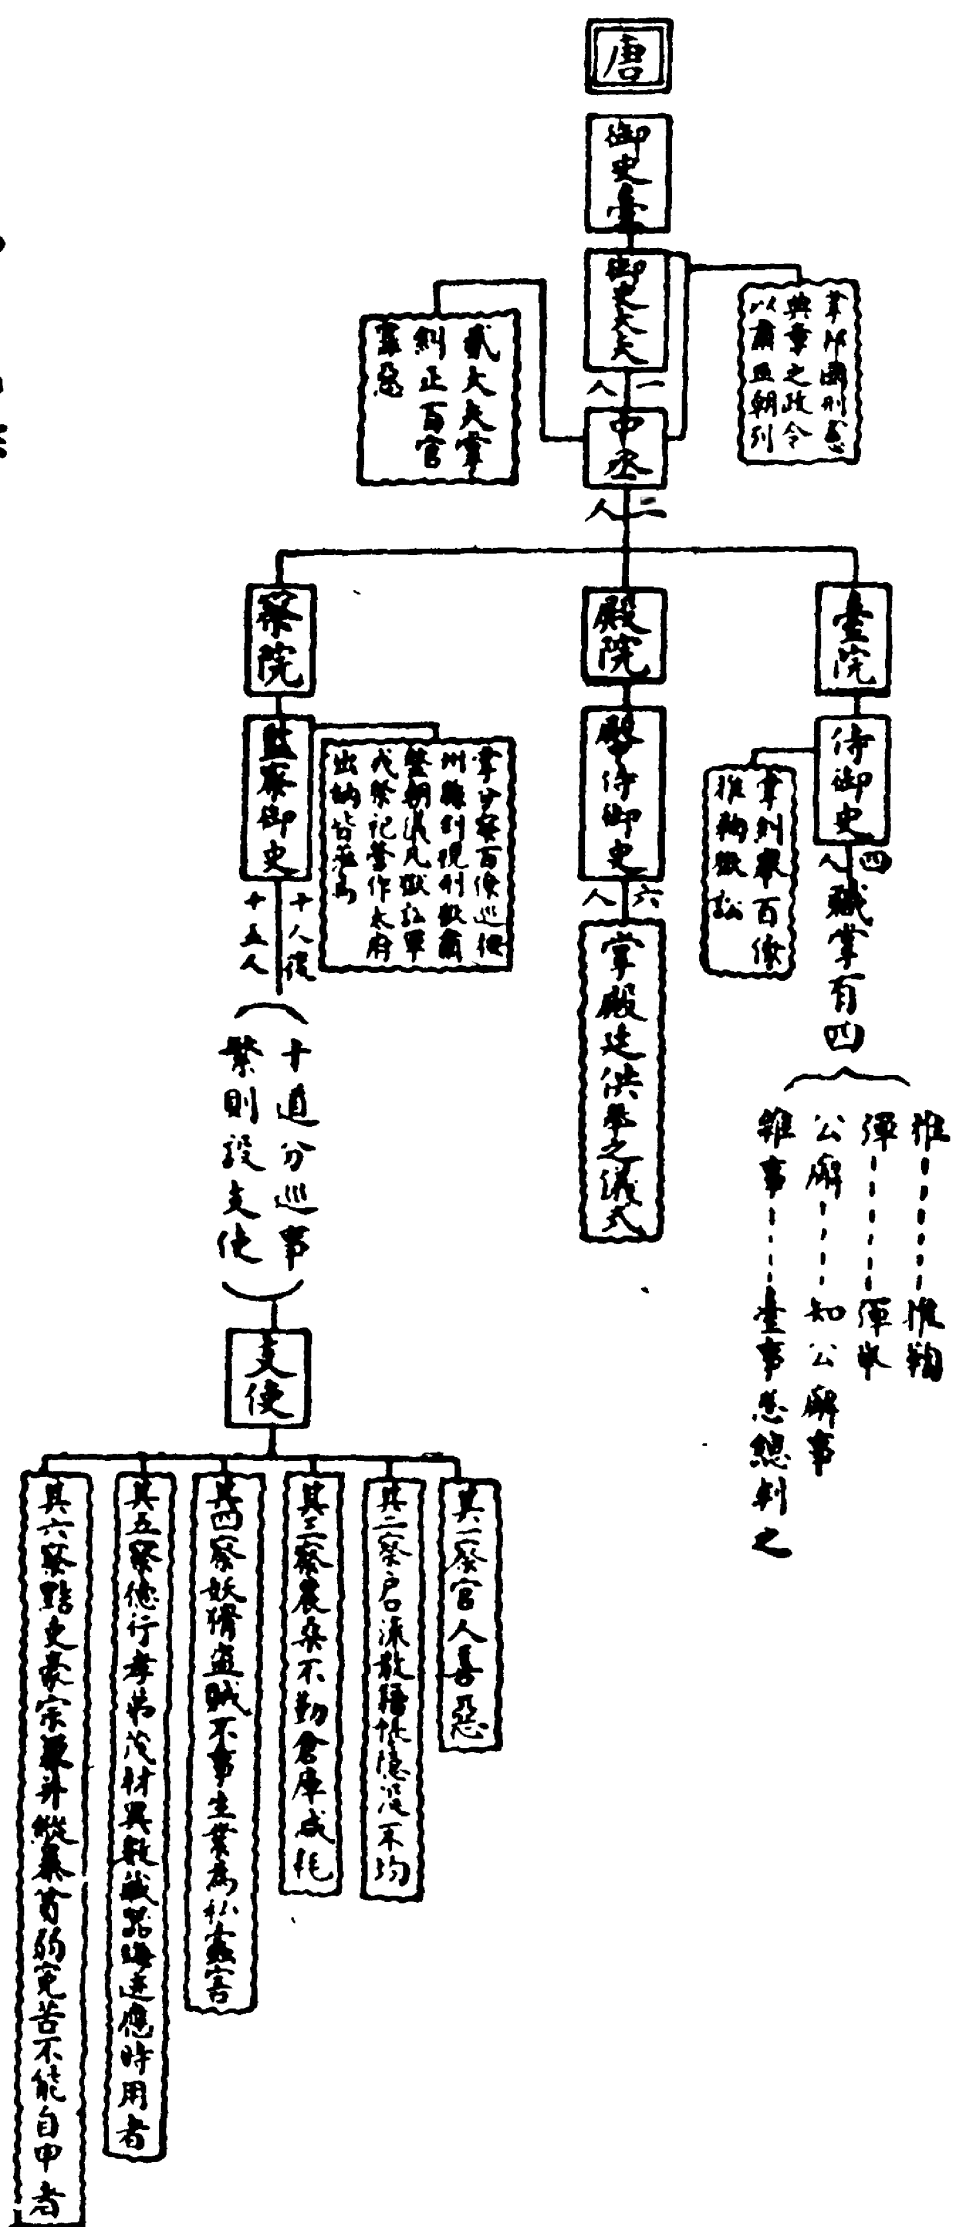 唐
御史臺
御史大夫
一人
掌邦國刑憲
典章之政令
以肅正朝列
中丞
二人
貳大夫掌
糾正百官
罪惡
臺院
侍御史
四人
掌糾舉百僚
推鞫獄訟
職掌有四
推……推鞫
彈……彈
公廨……知公廨事
雜事……臺事悉總判之
殿院
殿侍御史
六人
掌殿廷供奉之儀式
察院
監察御史
十人後
十五人
掌分察百僚巡按
州縣糾視刑獄肅
整朝儀凡獄訟軍
戎祭祀營作太府
出納皆蒞焉
（十道分巡事
繁則設支使）
支使
其一察官人善惡
其二察户流散籍帳隱沒不均
其三察農桑不勤倉庫減耗
其四察妖猾盜賊不事生業為私蠹害
其五察德行孝弟茂材異數藏器晦迹應時用者
其六察黠吏豪宗兼并縱暴貧弱冤苦不能自申者